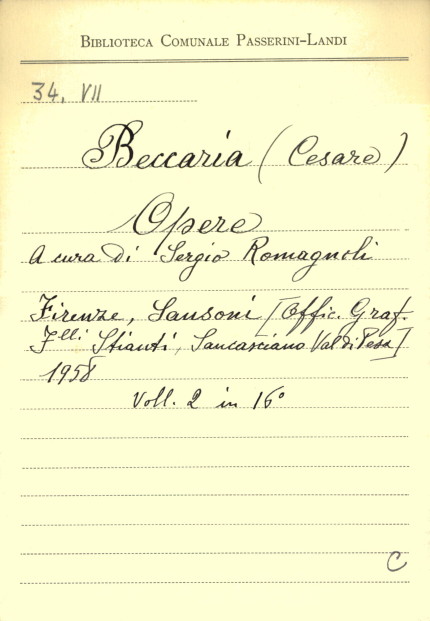 BIBLIOTECA COMUNALE PASSERINI-LANDI
34. VII
Beccaria (Cesare)
Opere
A cura di Sergio Romagnoli
Firenze, Sansoni [Offic. Graf.
F.lli Stianti, Sancasciano Val di Pesa]
1958
Voll. 2 in 16°
C